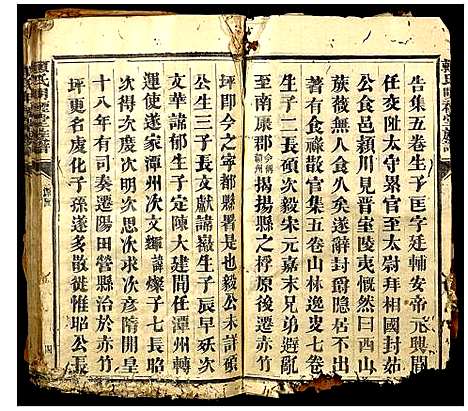 告集五卷生子匡字廷輔安帝元興間
任交阯太守累官至太尉拜相國封茹
公食邑潁川見晉室陵夷慨然曰西山
蕨薇無人食久矣遂辭封爵隱居不出
著有食祿散官集五卷山林逸叟七卷
生子二長碩次毅宋元嘉末兄弟避亂
至南康郡今稱贛州揭揚縣之桴原後遷赤竹
坪即今之寧都縣署是毅公未詳碩
公生三子長文獻諱嶽生子辰早殀次
文華諱郁生子定陳大建間任潭州轉
運使遂家潭州次文輝諱燦子七長昭
次得次慶次明次思次彥隋開皇
十八年有司奏遷陽田營縣治於赤竹
坪更名虔化子孫遂多散徙惟昭公長
四